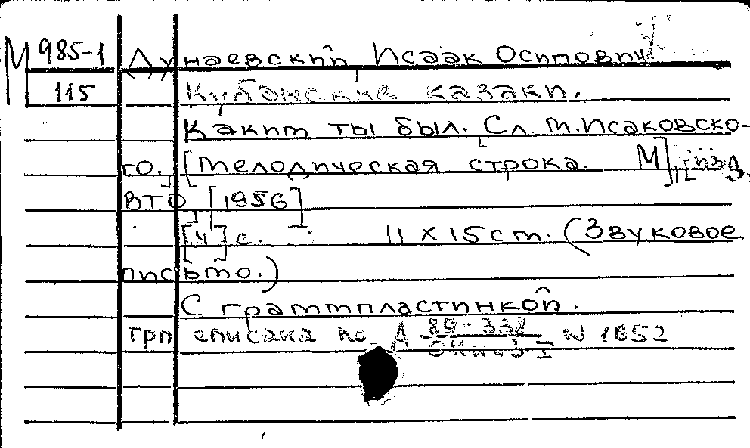 М 985-1
115
Дунаевский, Исаак Осипович
Кубанские казаки.
Каким ты был. Сл. М. Исаковско-
го. [Мелодическая строка. М], [изд.
ВТО, [1956]
[4] с. 11 х 15 cm. (Звуковое
письмо.)
С грампластинкой.
грп списана по А 89-338 № 1652